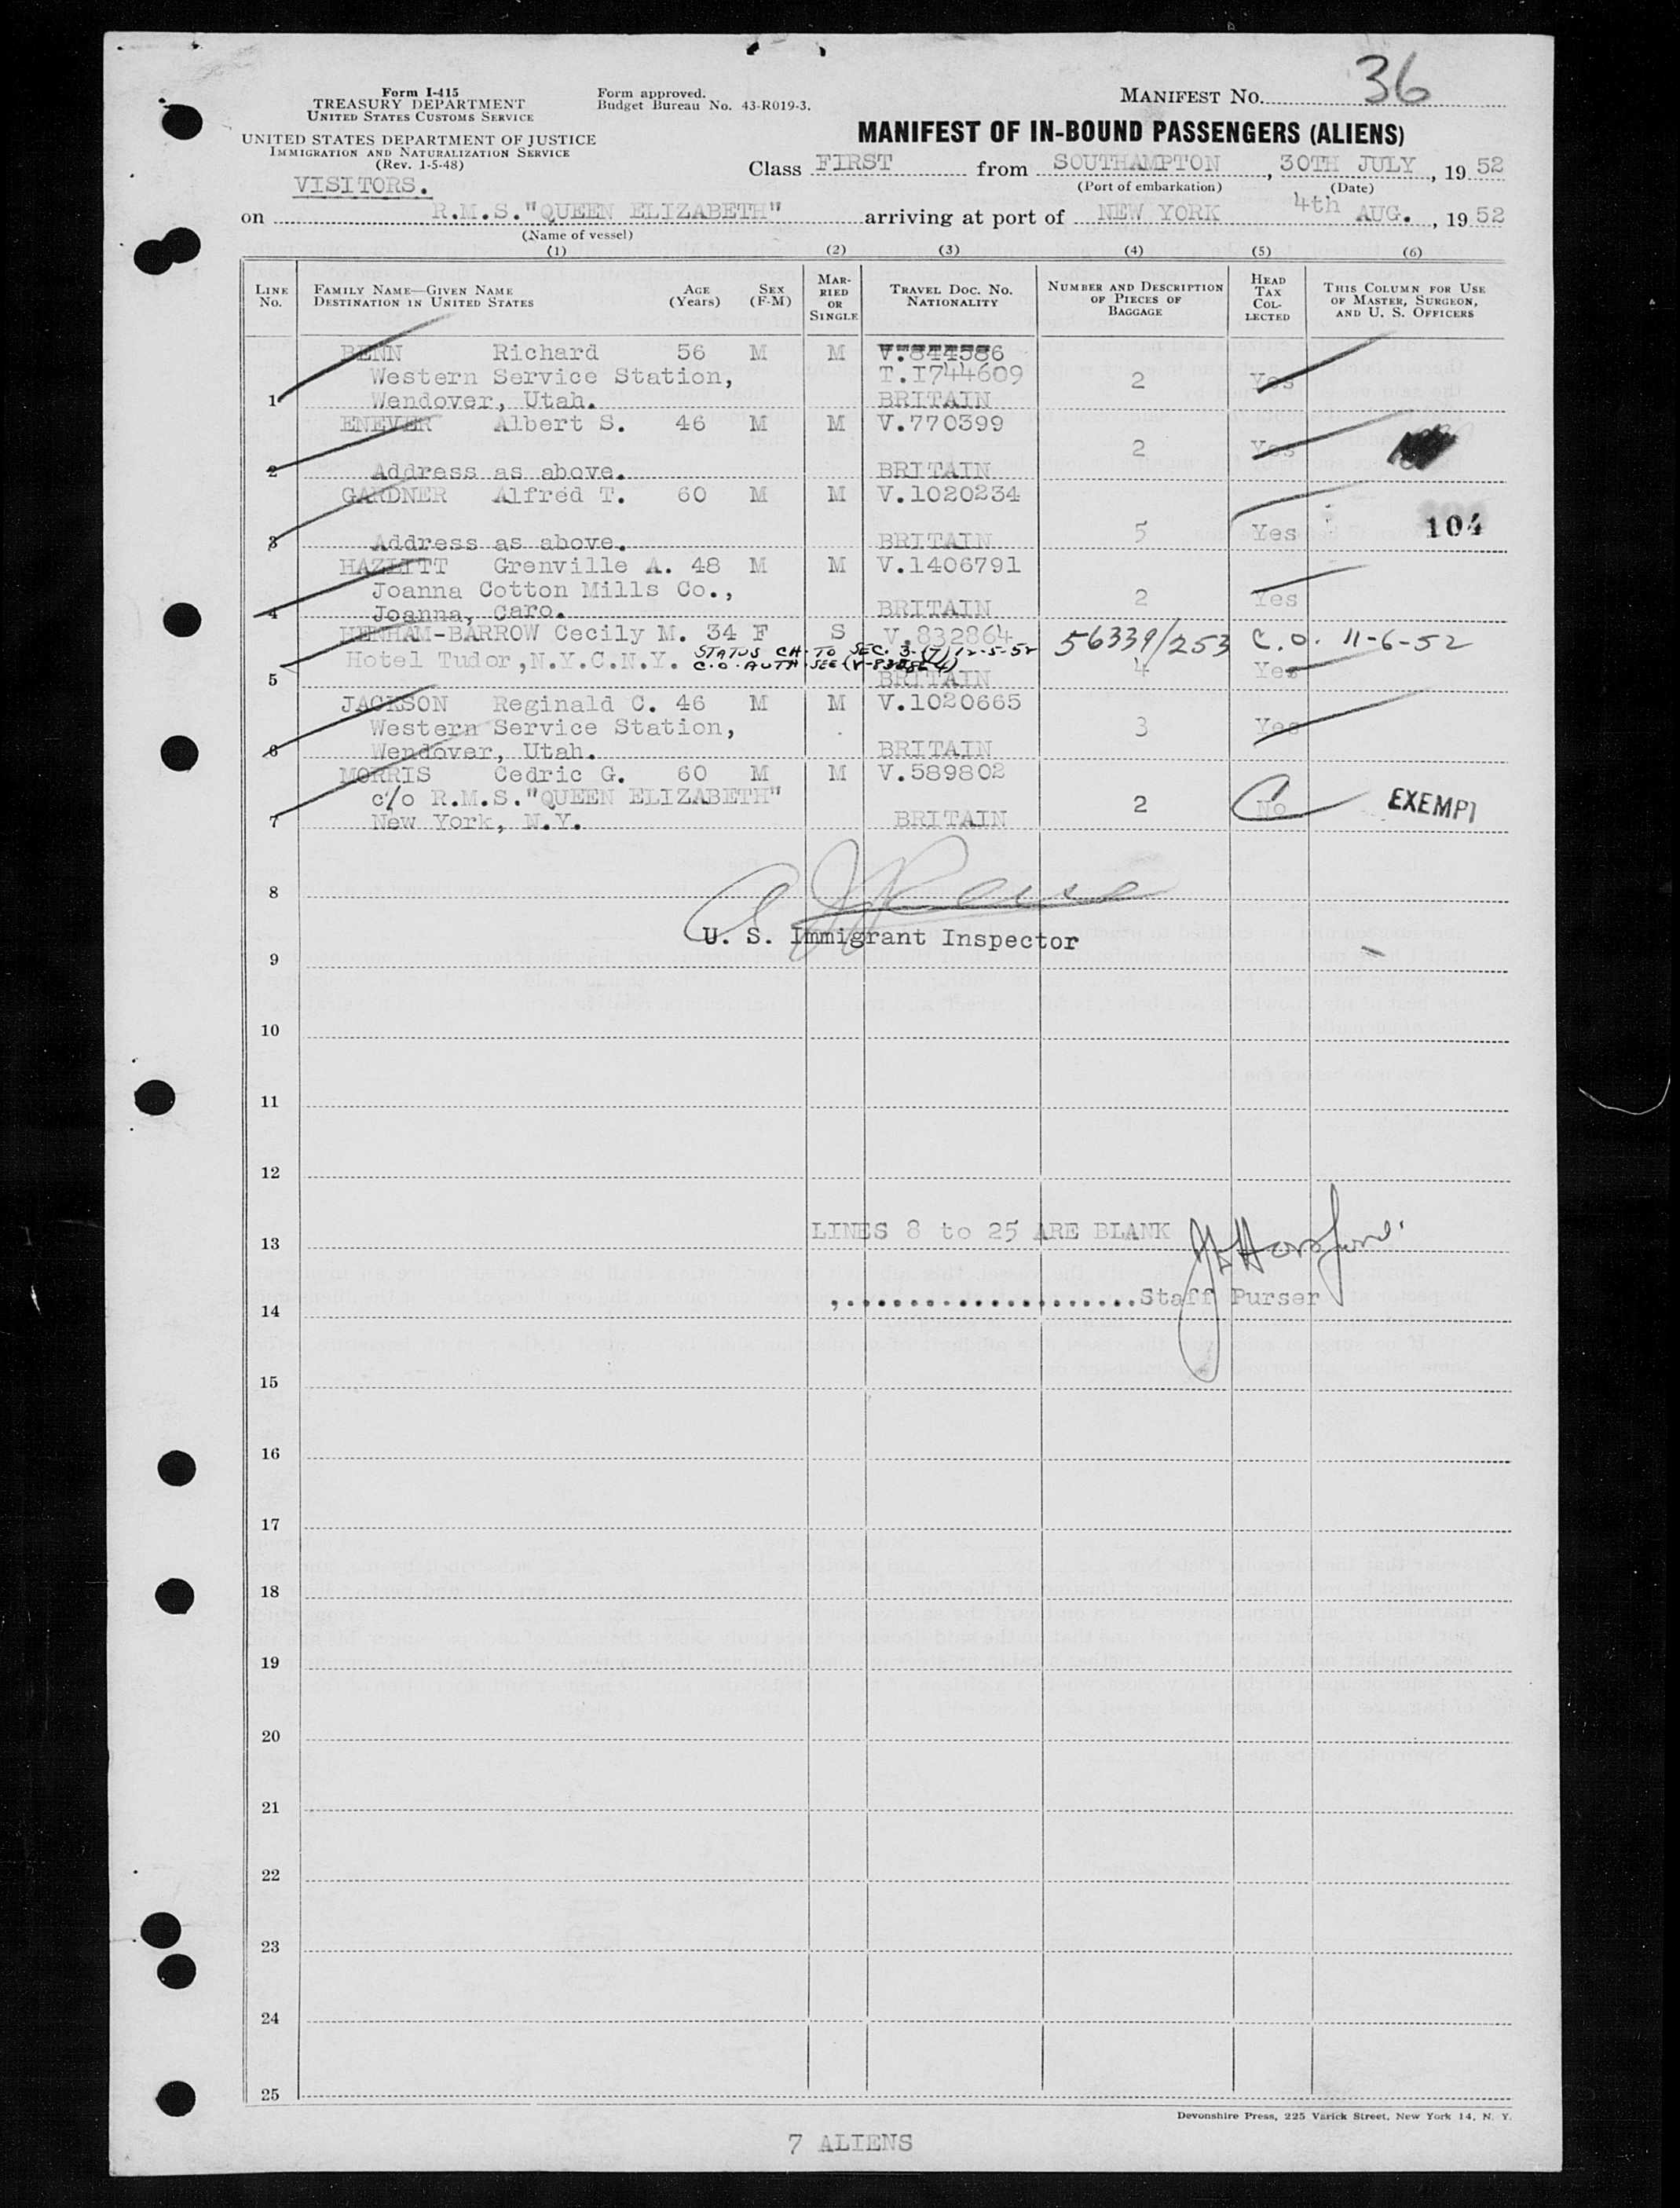 36
Form I-415
TREASURY DEPARTMENT
UNITED STATES CUSTOMS SERVICE
Form approved.
Budget Bureau No. 43-R019-3.
MANIFEST NO.
UNITED STATES DEPARTMENT OF JUSTICE
IMMIGRATION AND NATURALIZATION SERVICE
(Rev. 1-5-48)
MANIFEST OF IN-BOUND PASSENGERS (ALIENS)
VISITORS.
Class FIRST from SOUTHAMPTON, 30TH JULY, 19 52
(Port of embarkation) (Date)
on R.M.S."QUEEN ELIZABETH" arriving at port of NEW YORK 4th AUG., 19 52
(Name of vessel)
(1) (2) (3) (4) (5) (6)
LINE NO. FAMILY NAME—GIVEN NAME DESTINATION IN UNITED STATES AGE (Years) SEX (F-M) MARRIED OR SINGLE TRAVEL DOC. NO. NATIONALITY NUMBER AND DESCRIPTION OF PIECES OF BAGGAGE HEAD TAX COLLECTED THIS COLUMN FOR USE OF MASTER, SURGEON, AND U. S. OFFICERS
BENN Richard 56 M M V.844386
Western Service Station, T.1744609 2 Yes
1 Wendover, Utah. BRITAIN
ENEVER Albert S. 46 M M V.770399
2 Yes
2 Address as above. BRITAIN
GARDNER Alfred T. 60 M M V.1020234
5 Yes 104
3 Address as above. BRITAIN
HAZLITT Grenville A. 48 M M V.1406791
Joanna Cotton Mills Co., 2 Yes
4 Joanna, Caro. BRITAIN
HENHAM-BARROW Cecily M. 34 F S V.832864 56339/253 C.O. 11-6-52
Hotel Tudor, N.Y.C.N.Y. STATUS CH. TO SEC. 3-(7) 12-5-52
C.O. AUTH. SEE (V-832864) 4 Yes
5 BRITAIN
JACKSON Reginald C. 46 M M V.1020665
Western Service Station, 3 Yes
6 Wendover, Utah. BRITAIN
MORRIS Cedric G. 60 M M V.589802
c/o R.M.S."QUEEN ELIZABETH" 2 No EXEMPT
7 New York, N.Y. BRITAIN
8
U. S. Immigrant Inspector
9
10
11
12
LINES 8 to 25 ARE BLANK
13
14 Staff Purser
15
16
17
18
19
20
21
22
23
24
25
Devonshire Press, 225 Varick Street, New York 14, N. Y.
7 ALIENS